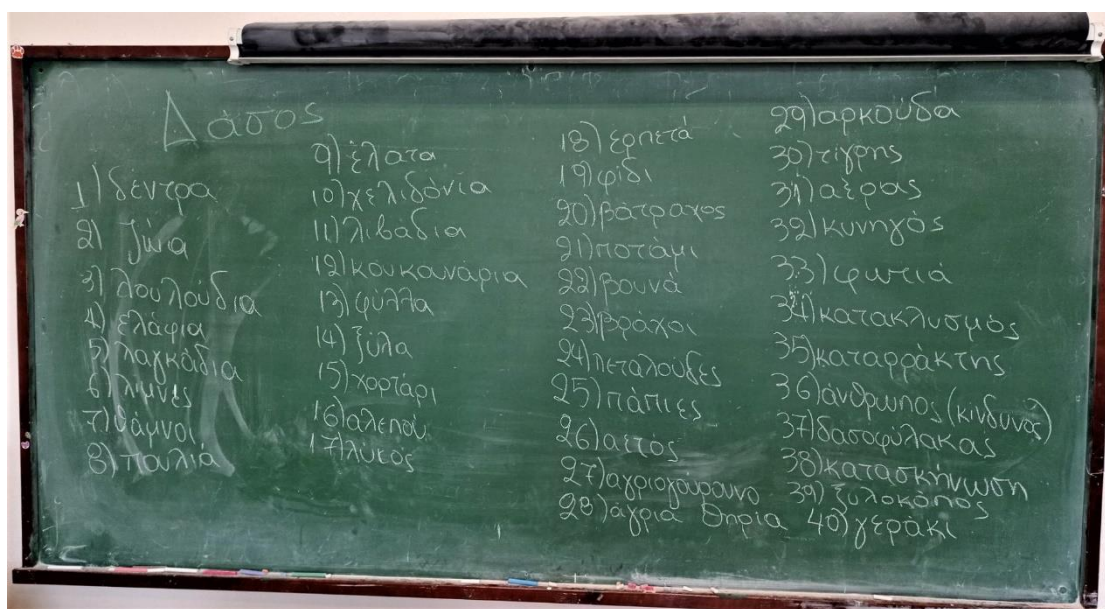 Δάσος
1) δέντρα
2) ζώα
3) λουλούδια
4) ελάφια
5) λαγκάδια
6) λίμνες
7) θάμνοι
8) πουλιά
9) έλατα
10) χελιδόνια
11) λιβάδια
12) κουκουνάρια
13) φύλλα
14) ξύλα
15) χορτάρι
16) αλεπού
17) λύκος
18) ερπετά
19) φίδι
20) βάτραχος
21) ποτάμι
22) βουνά
23) βράχοι
24) πεταλούδες
25) πάπιες
26) αετός
27) αγριογούρουνο
28) άγρια θηρία
29) αρκούδα
30) τίγρης
31) αέρας
32) κυνηγός
33) φωτιά
34) κατακλυσμός
35) καταρράκτης
36) άνθρωπος (κίνδυνος)
37) δασοφύλακας
38) κατασκήνωση
39) ξυλοκόπος
40) γεράκι